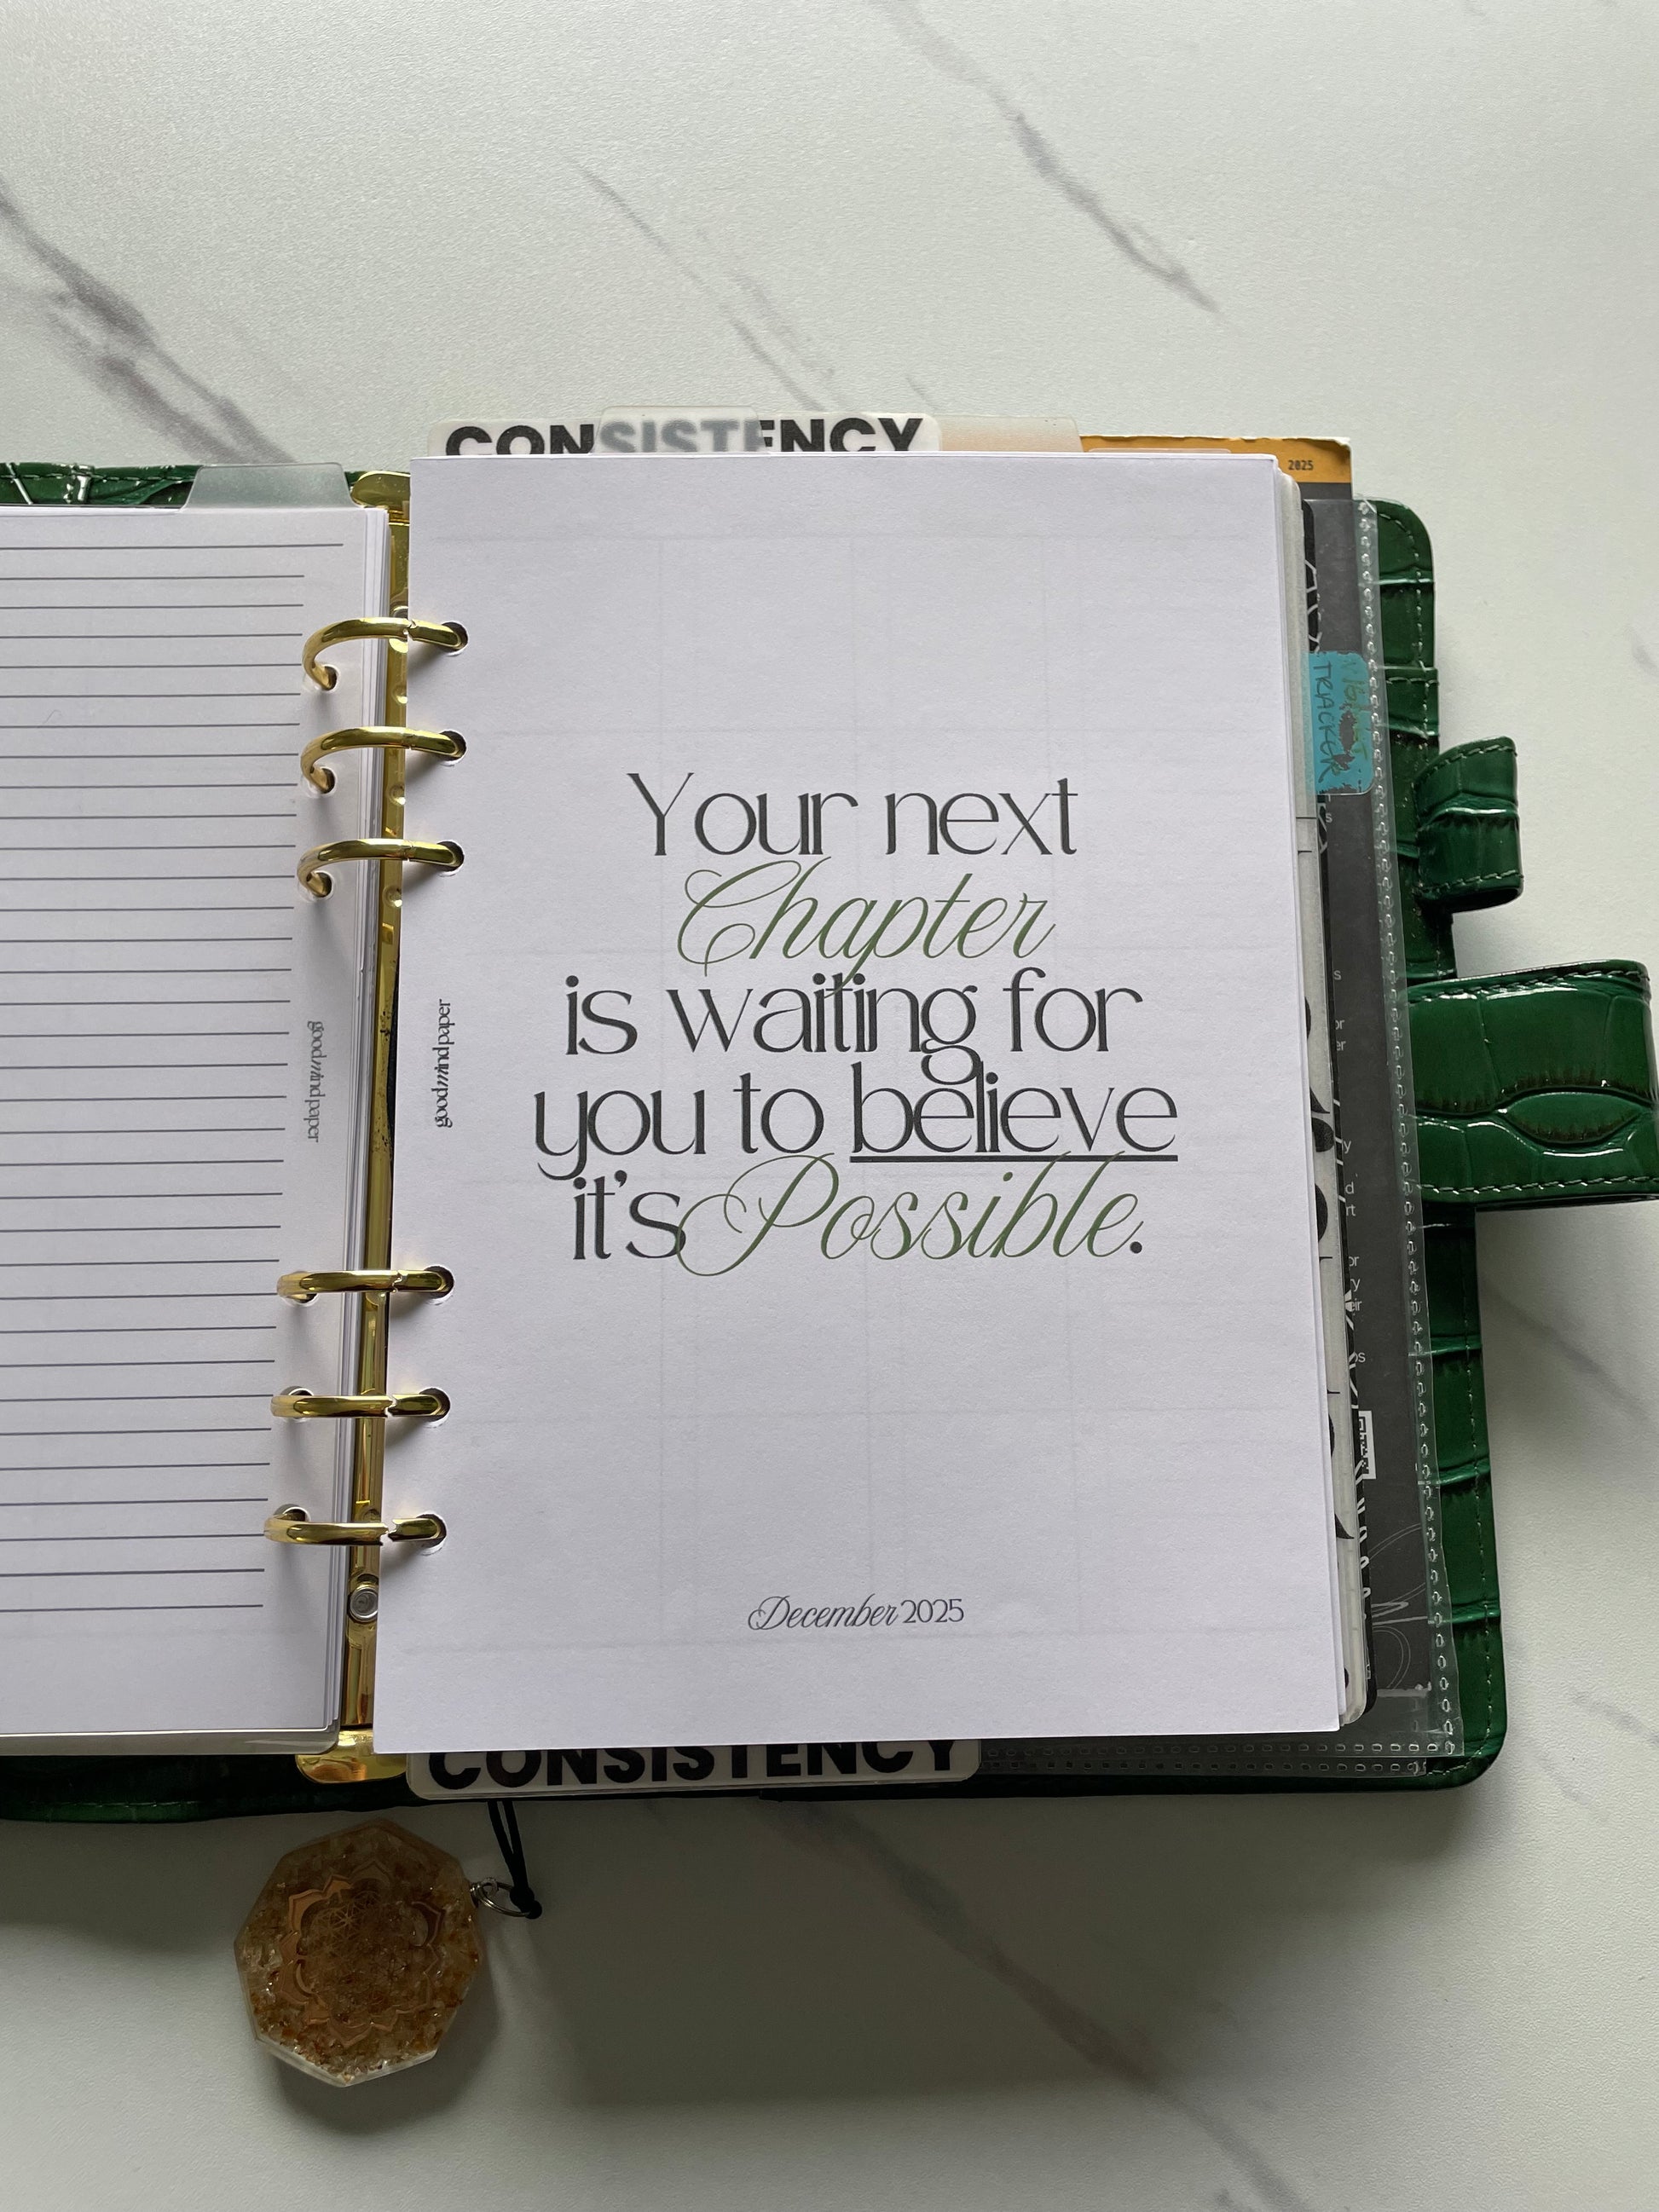 CONSISTENCY
2025
TRACKER
goodmindpaper
goodmindpaper
Your next
Chapter
is waiting for
you to believe
it's Possible.
December 2025
CONSISTENCY